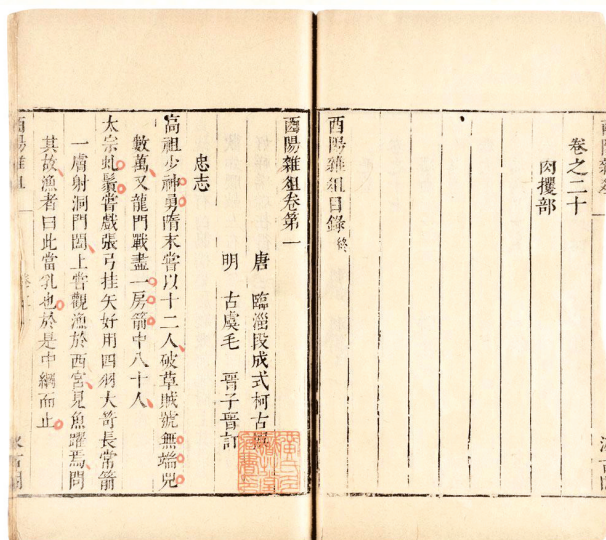 卷之二十
肉攫部
酉陽雜俎目錄 終
酉陽雜俎卷第一
唐 臨淄段成式柯古
明 古虞毛 晉子晉訂
忠志
高祖少神勇隋末嘗以十二人破草賊號無端兒
數萬又龍門戰盡一房箭中八十人
太宗虬鬚嘗戲張弓挂矢好用四羽大笴長常箭
一膚射洞門闔上嘗觀漁於西宮見魚躍焉問
其故漁者曰此當乳也於是中網而止